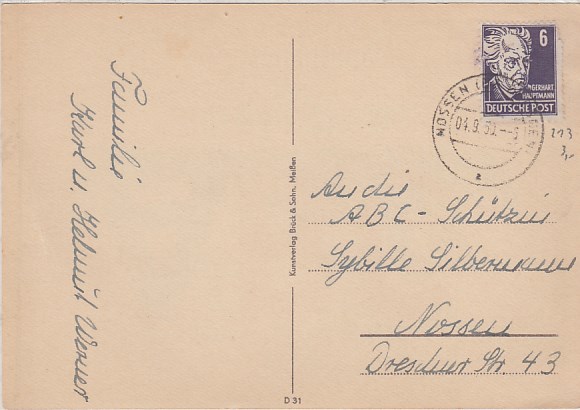 Familie
Karl u. Helmut Werner
Kunstverlag Brück & Sohn, Meißen
D 31
6
GERHART
HAUPTMANN
DEUTSCHE POST
NOSSEN
04.9.50.
z
213
3,-
An die
ABC-Schützin
Sybille Silbermann
Nossen
Dresdner Str. 43